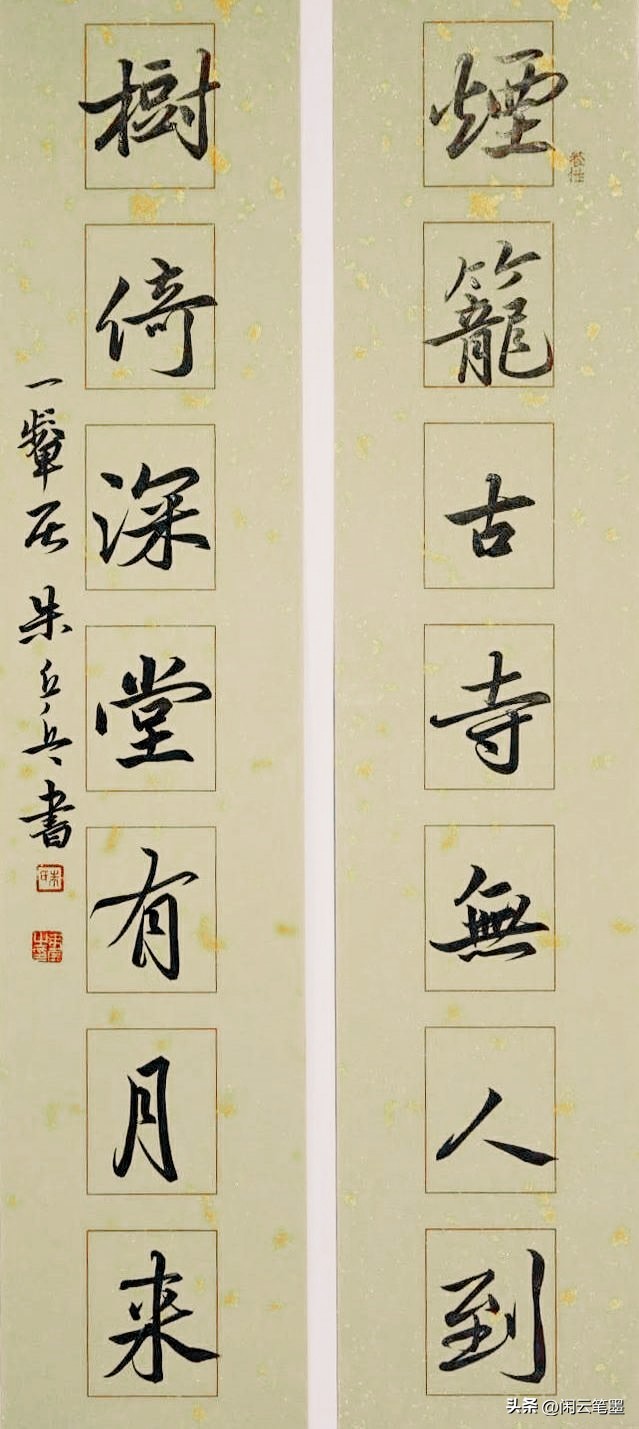 煙籠古寺無人到
樹倚深堂有月来
朱丘兵書
头条 @闲云笔墨